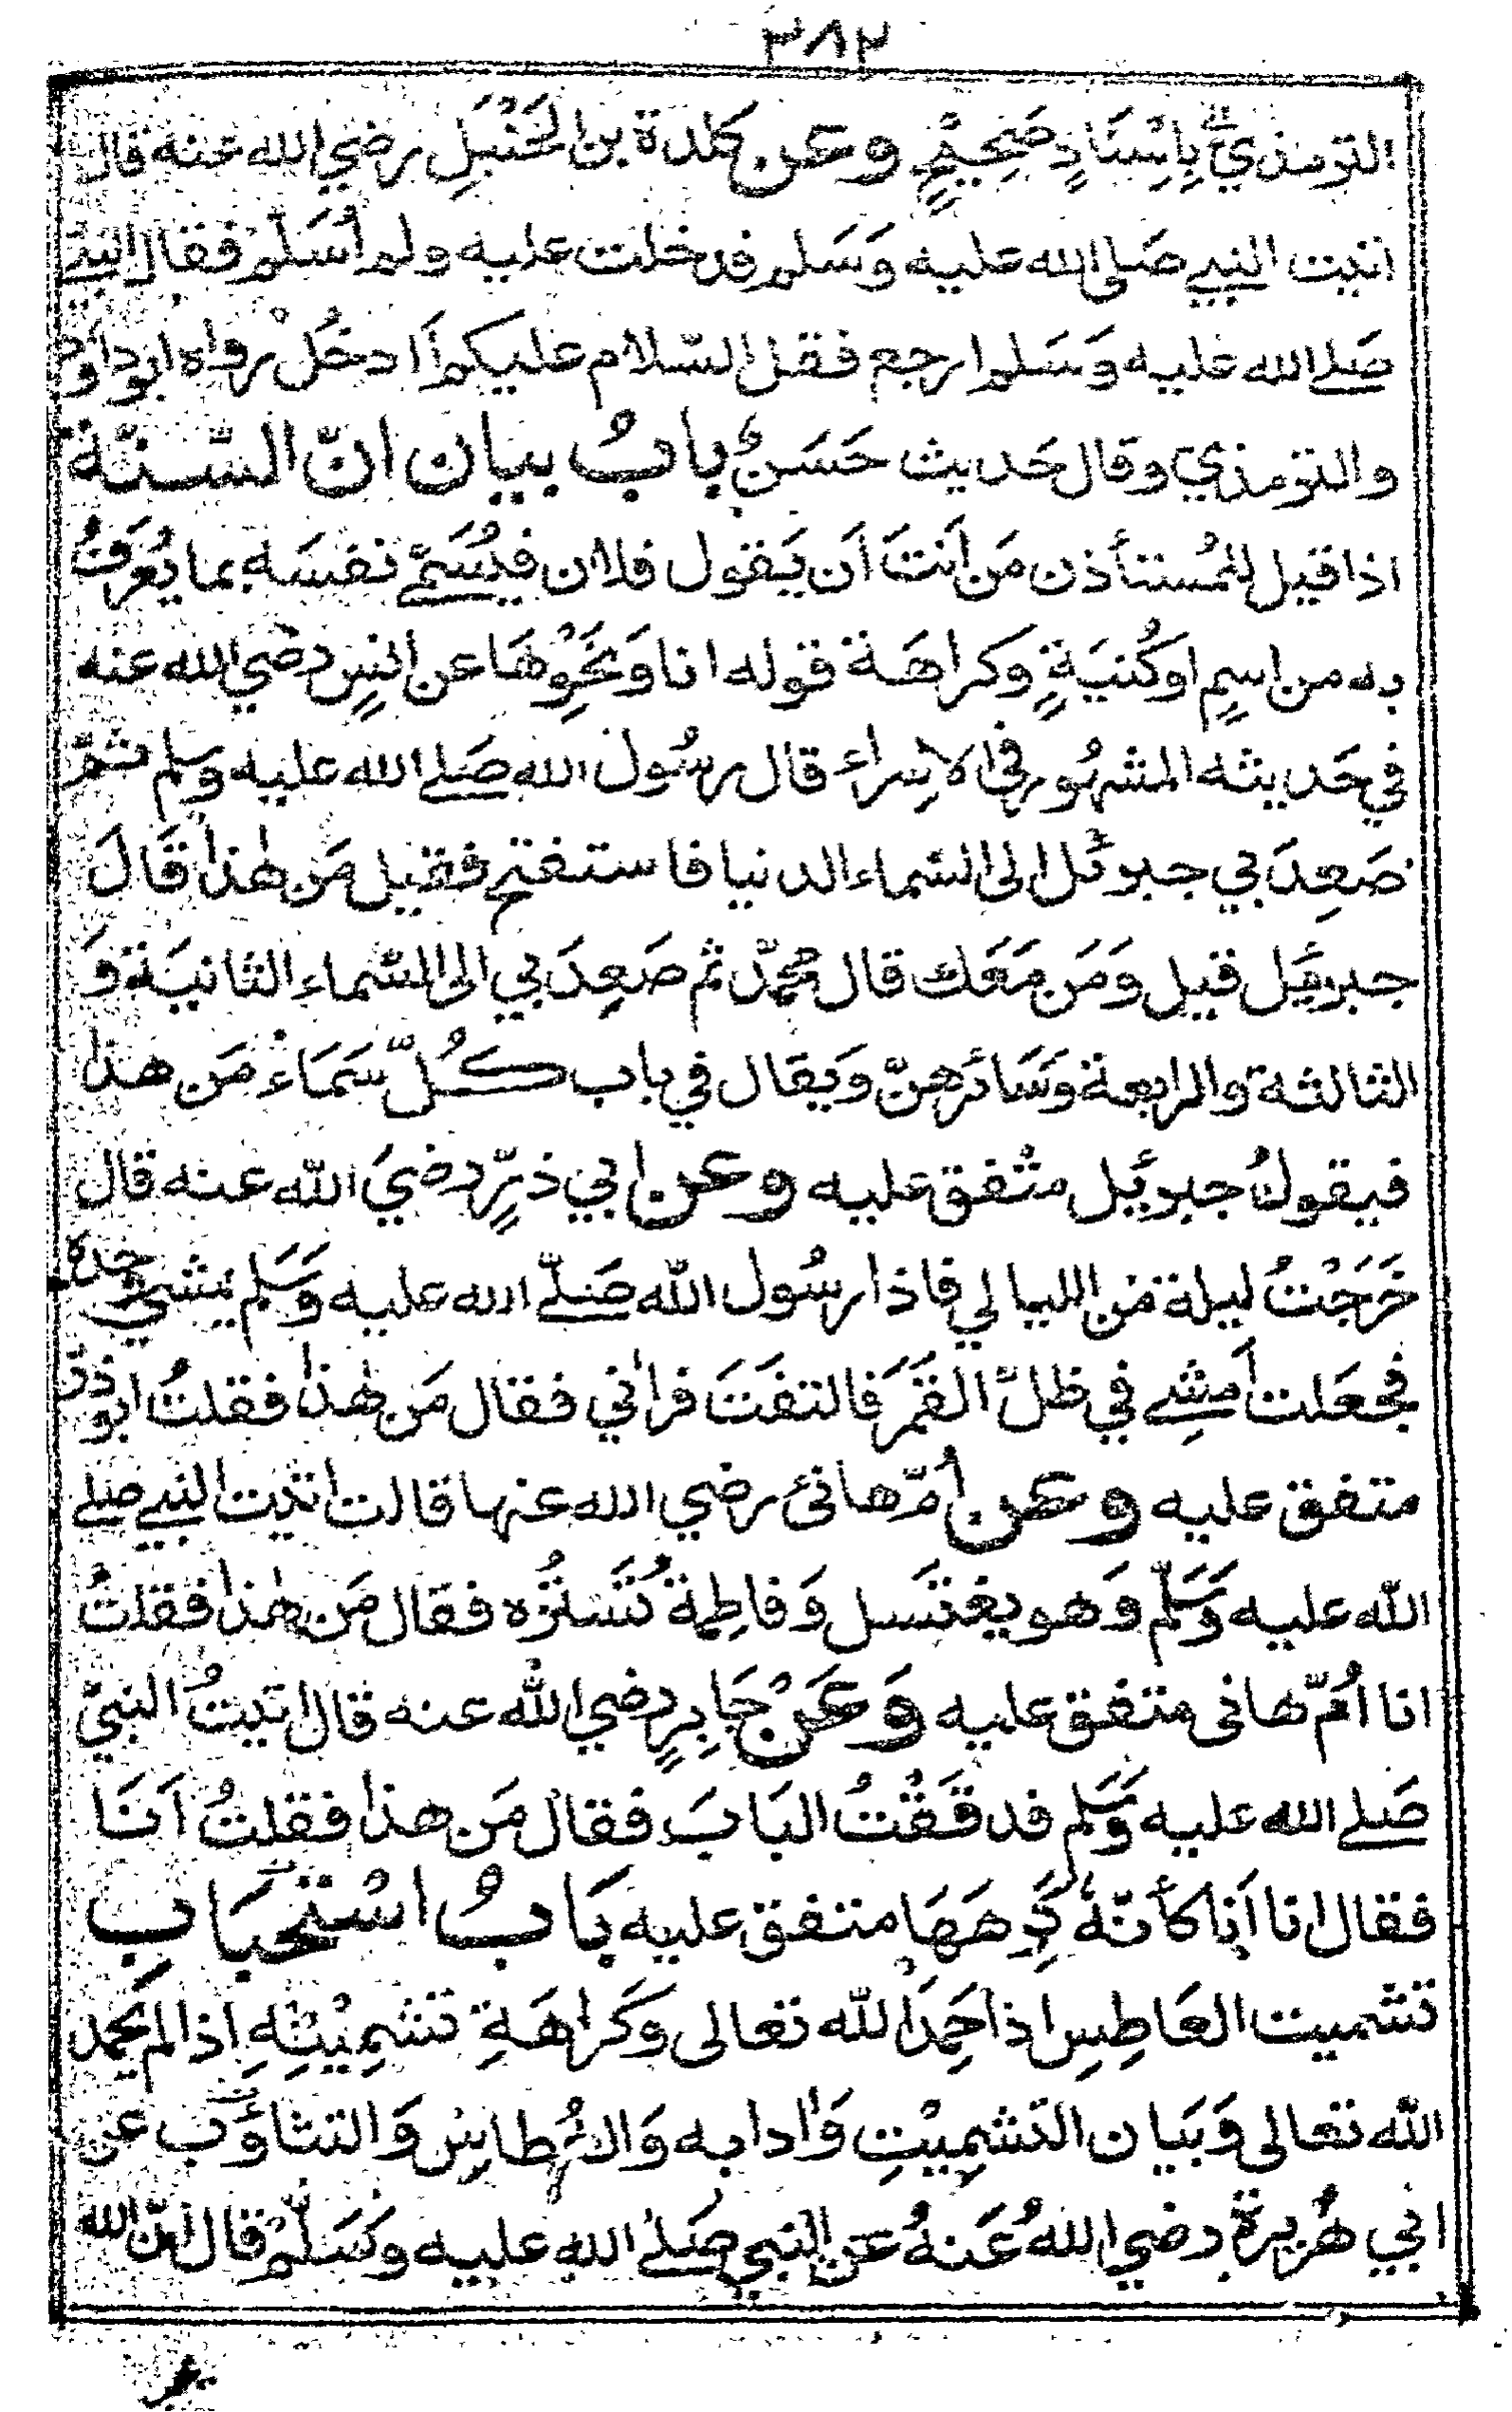 ٣٨٢
الترمذيُّ بِاِسْنَادٍ صَحِيْحٍ وعن كلدة بن الحَنْبَلِ رضي الله عنه قال
اتيت النبي صَلى الله عليه وَسَلم فدخلت عليه ولم اُسَلّم فقال النبي
صَلے الله عليه وَسَلم ارجع فقل السّلام عليكم اَادخُلْ رواه ابوداوٗد
والترمذي وقال حَديث حَسَنٌ بابُ بيان انّ السّنّة
اذا قيل للمُستأذن مَن اَنتَ اَن يَقول فلان فيُسَمّے نفسَه بما يُعرَفُ
به من اسمٍ او كُنيَةٍ وكراهَة قوله انا وَنحْوِهَا عن انسٍ رضي الله عنه
في حَديثه المشهُور في الاسراء قال رسُول الله صَلے الله عليه وسلم ثمّ
صَعِدَ بي جبرئل الى السّماء الدنيا فاستفتح فقيل مَن هٰذا قَالَ
جبرئيل قيل وَمَن مَعَك قال محمّد ثم صَعِدَ بي الى السّماء الثانيَة وَ
الثالثة والرابعة وَسَائرهنّ وَيقال في باب كُلّ سَمَاءٍ مَن هذا
فيقولُ جبرئيل متفق عليه وعن ابي ذرٍّ رضيَ الله عنه قال
خَرَجْتُ ليلة من الليالي فاذا رسُول الله صَلّے الله عليه وَسَلم يمشي وحده
فجعَلت اَمشِے في ظلّ القمَر فالتفَتَ فراٰني فقال مَن هٰذا فقلتُ ابوذرّ
متفق عليه وعن اُمّ هانئ رضي الله عنها قالت اتيت النبي صلے
الله عليه وَسَلّم وَهو يغتَسل وَفاطِمة تَستُرُه فقال مَن هٰذا فقلتُ
انا اُمّ هانى متفق عليه وَعَنْ جَابِرٍ رضي الله عنه قال اتيتُ النبيّ
صَلے الله عليه وَسَلم فدقَقْتُ البَابَ فقال مَن هذا فقلتُ اَنَا
فقال انا اَنا كأنّهٗ كَرِهَهَا متفق عليه بَابُ اسْتحبَابِ
تشميت العَاطِسِ اذا حَمِدَ الله تعالى وَكَراهَةِ تشمِيْتِهِ اِذا لم يحمد
الله تعالى وَبَيان التشمِيْتِ وَاٰدابه وَالعُطاسِ وَالتثاؤبِ عن
ابي هُريرة رضي اللهُ عَنهُ عَنِ النبي صَلےٰ الله عليه وَسَلّمْ قال انّ الله